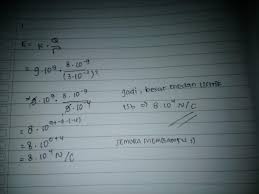 E = k · Q/r
= 9·10⁹ · 8·10⁻⁹/(3·10⁻²)²
= 9·10⁹ · 8·10⁻⁹/9·10⁻⁴
= 8·10⁰⁻⁽⁻⁴⁾
= 8·10⁰⁺⁴
= 8·10⁴ N/C
Jadi, besar medan listrik
tsb => 8·10⁴ N/C
SEMOGA MEMBANTU :)